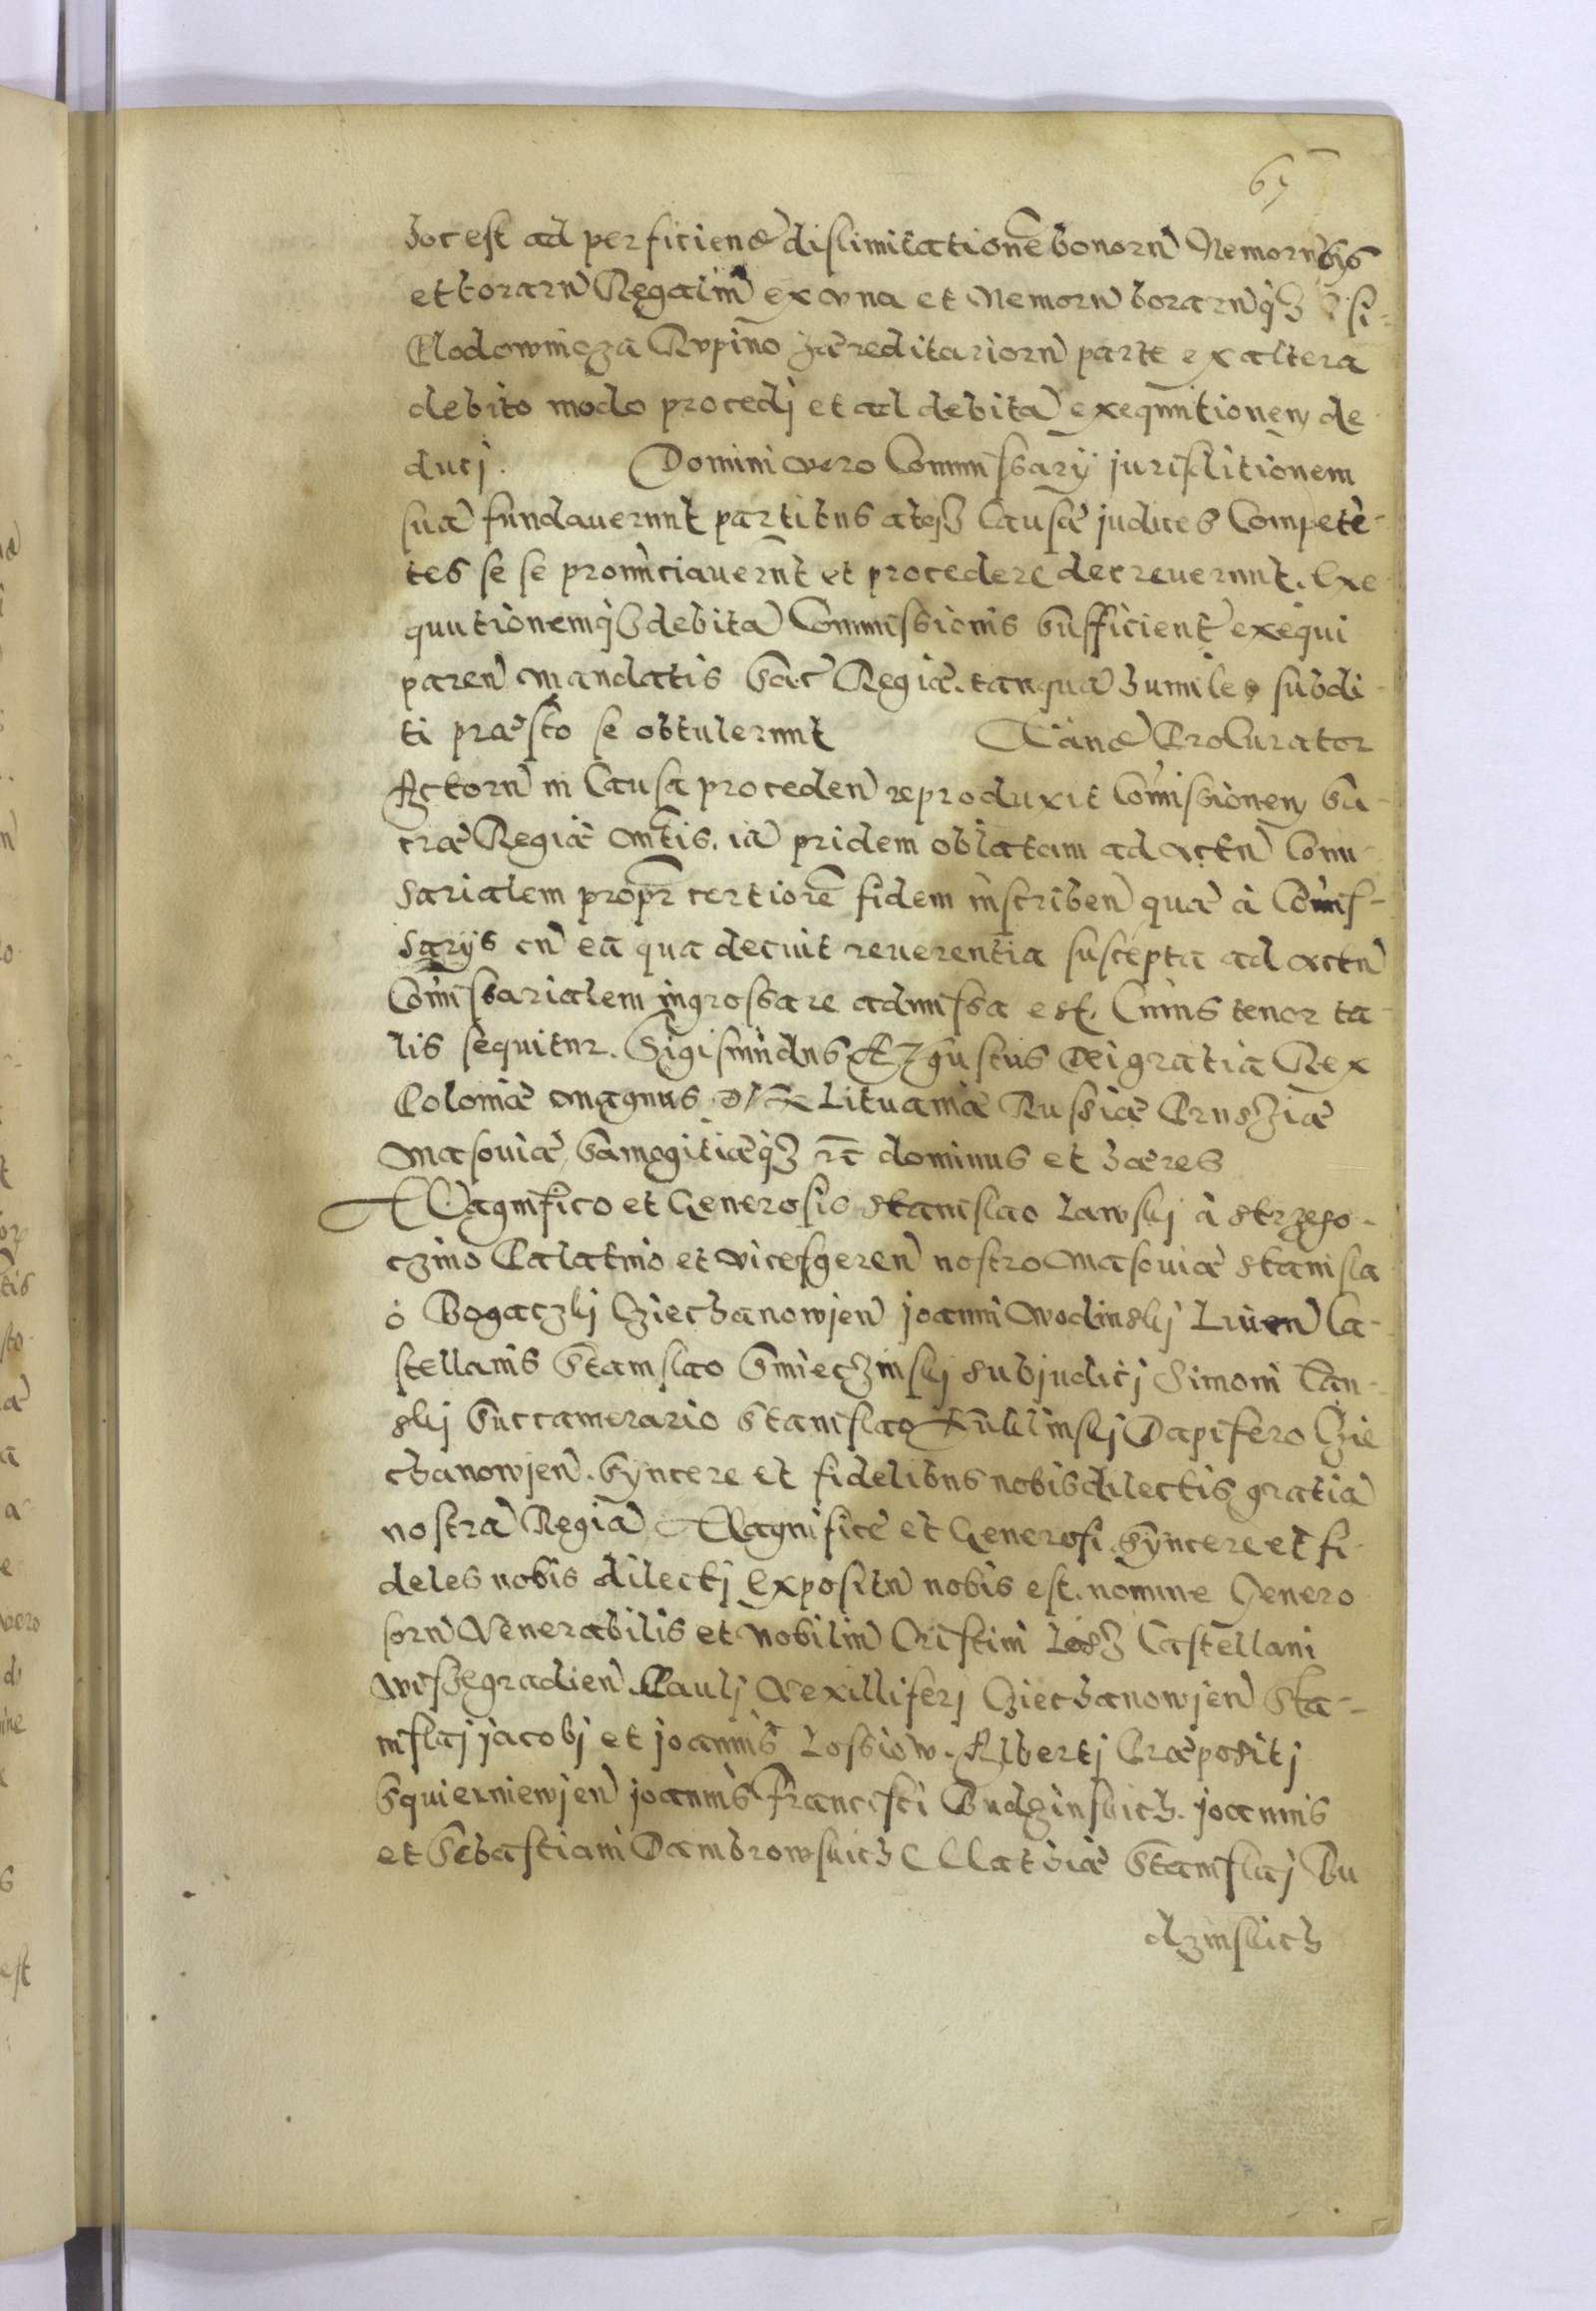 67
hoc est ad perficiend dislimitationē bonorū Nemorū
et borarū Regaliū ex vna et Nemorū borarūq3
Clodowmoza Rvpino hæreditariorū parte ex altera
debito modo procedj et ad debitā exequutionem de
ducj. Domini vero Commissarij jurisditionem
suā fundauerunt partibus atq3 Causæ judices Competē-
tes se se pronūciauerūt et procedere decreuerunt. Exe
quutionemq3 debitā Commissionis sufficient exequi
paren mandatis Sac Regiæ. tanquā humiles subdi
ti præsto se obtulerunt Tand Procurator
Actorū in Causa proceden reproduxit Comissionem Sa
cræ Regiæ Mtis. iā pridem oblatam ad Actū Comi
sarialem propr certiorē fidem inscriben quæ à Comis-
sarijs cū eā qua decuit reuerentia suscepta ad Actū
Comissarialem ingrossare admissa est. Cuius tenor ta
lis sequitur. Sigismūdus Augustus Dei gratia Rex
Poloniæ Magnus Dux Lituaniæ Russiæ Prussiæ
Masouiæ Samogitiæq3 rc dominus et hæres
Magnifico et Generosis Stanislao Lawskj à Strzego
czino Palatino et vicesgeren nostro Masouiæ Stanisla
o Bogaczkj Cziechanowien joanni Wodinskj Liuen Ca-
stellanis Stanislao Smieczinskj Subjudicj Simoni Can-
skj Succamerario Stanislao Kuklinskj Dapifero Czie
chanowjen. Syncere et fidelibus nobis dilectis gratiā
nostrā Regiā Magnifice et Generosi. Syncere et fi
deles nobis dilectj Expositū nobis est. nomine Genero
sorū Venerabilis et Nobiliū Cristini Losz Castellani
Wissegradien. Paulj Vexilliferj Cziechanowjen Sta-
nislaj jacobj et joannis Lossiow. Albertj Præpositj
Squierniewjen joannis Francisci Budzinskich. joannis
et Sebastiani Dambrowskich Mathiæ Stanislaj Bu
dzinskich